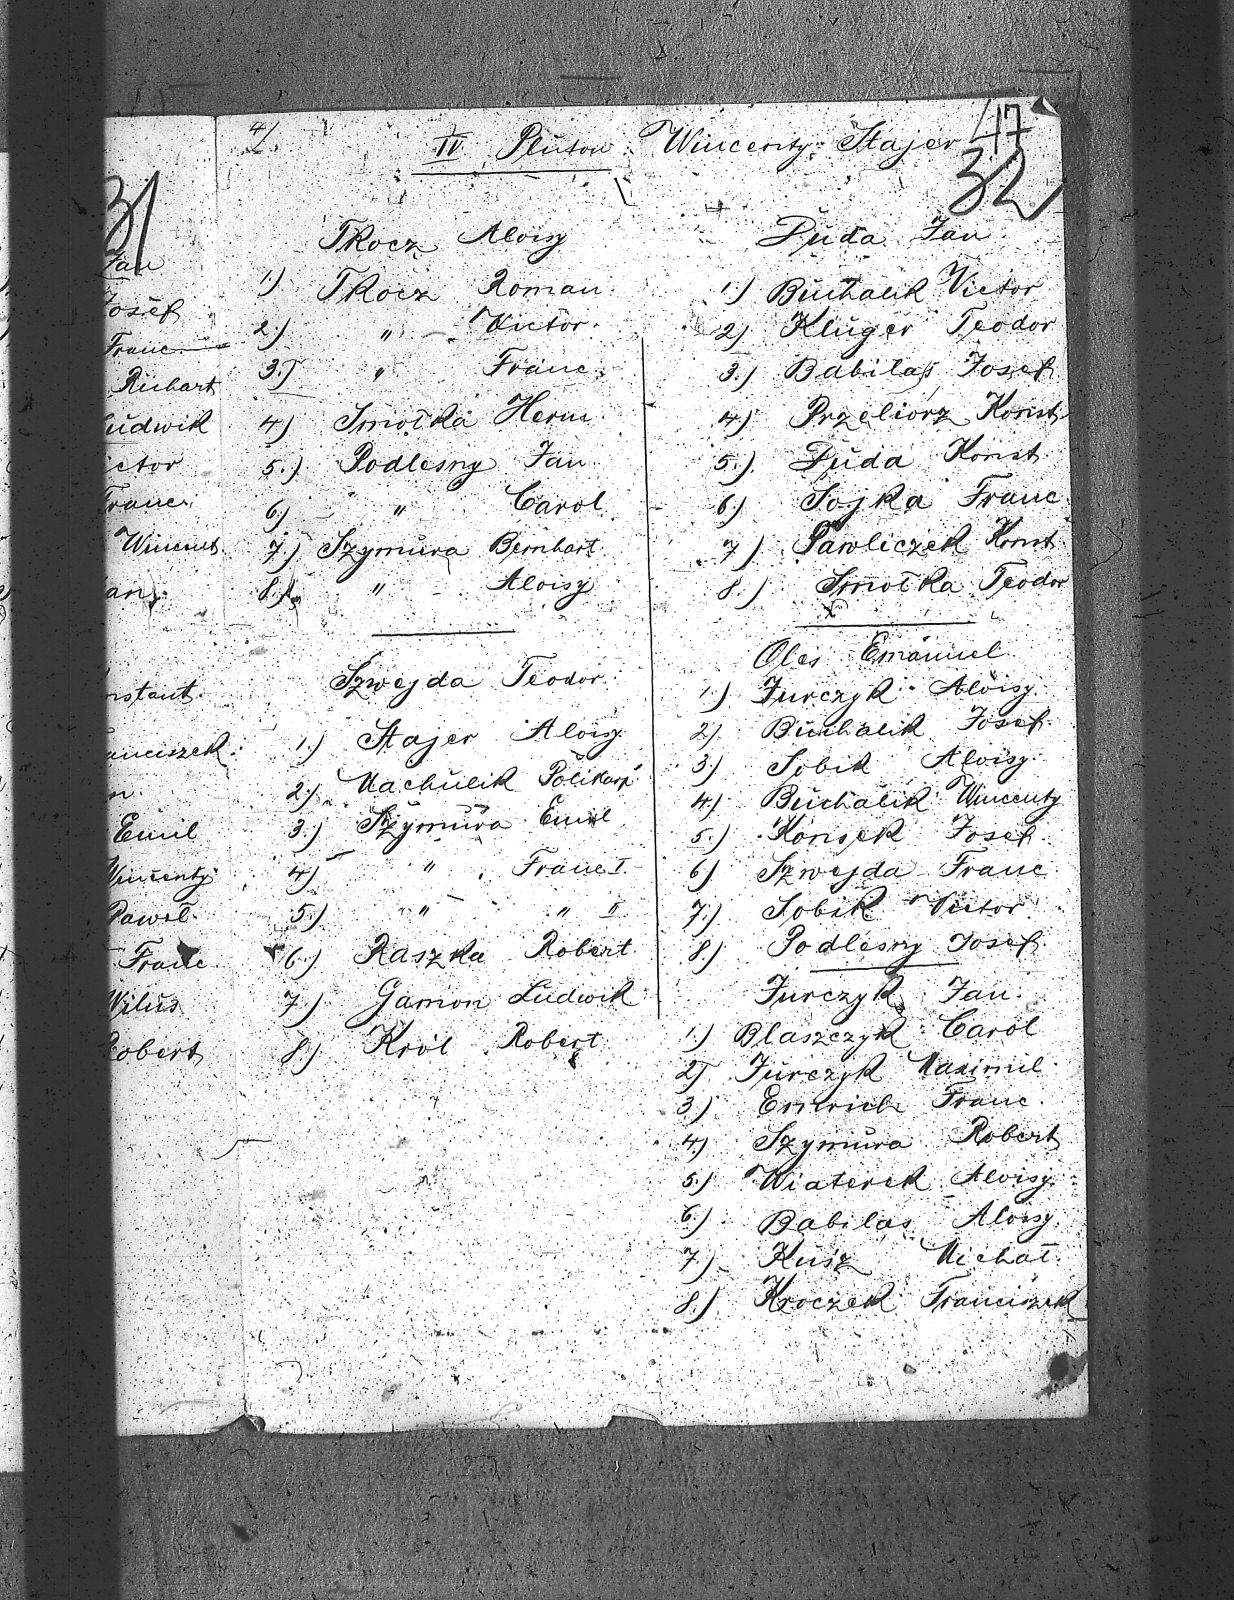 31
Jan
Josef
Franc.
Richart
Ludwik
ictor
Franc.
Wincent.
an.
nstant.
anciszek.
n.
Emil
Wincenty
Paweł
Franc.
Wilus
Robert
4/.
IV Pluton Wincenty Stajer
47
32
Tkocz Aloisy
1.) Tkocz Roman
2.) " Victor.
3.) " Franc.
4) Smołka Herm.
5.) Podlesny Jan
6) " Carol
7.) Szymura Bernhart
8.) " Aloisy
Szwejda Teodor.
1.) Stajer Aloisy
2.) Machulik Polikarp
3.) Szymura Emil
4) " Franc I.
5.) " " II
6.) Raszka Robert
7.) Gamon Ludwik
8.) Król Robert
Duda Jan
1.) Buchalik Victor
2) Kluger Teodor
3.) Babilas Josef
4) Przeliorz Konst.
5.) Duda Konst
6.) Sojka Franc.
7) Pawliczek Konst
8.) Smołka Teodor
Oles Emanuel
1.) Jurczyk Aloisy.
2) Buchalik Josef.
3) Sobik Aloisy
4) Buchalik Wincenty
5.) Konsek Josef
6) Szwejda Franc
7.) Sobik Victor
8.) Podlesny Josef.
Jurczyk Jan.
1.) Blaszczyk Carol
2) Jurczyk Maximil.
3) Emrich Franc.
4) Szymura Robert
5.) Wiaterek Aloisy.
6.) Babilas Aloisy.
7.) Kusz Michał.
8.) Kroczek Franciszek